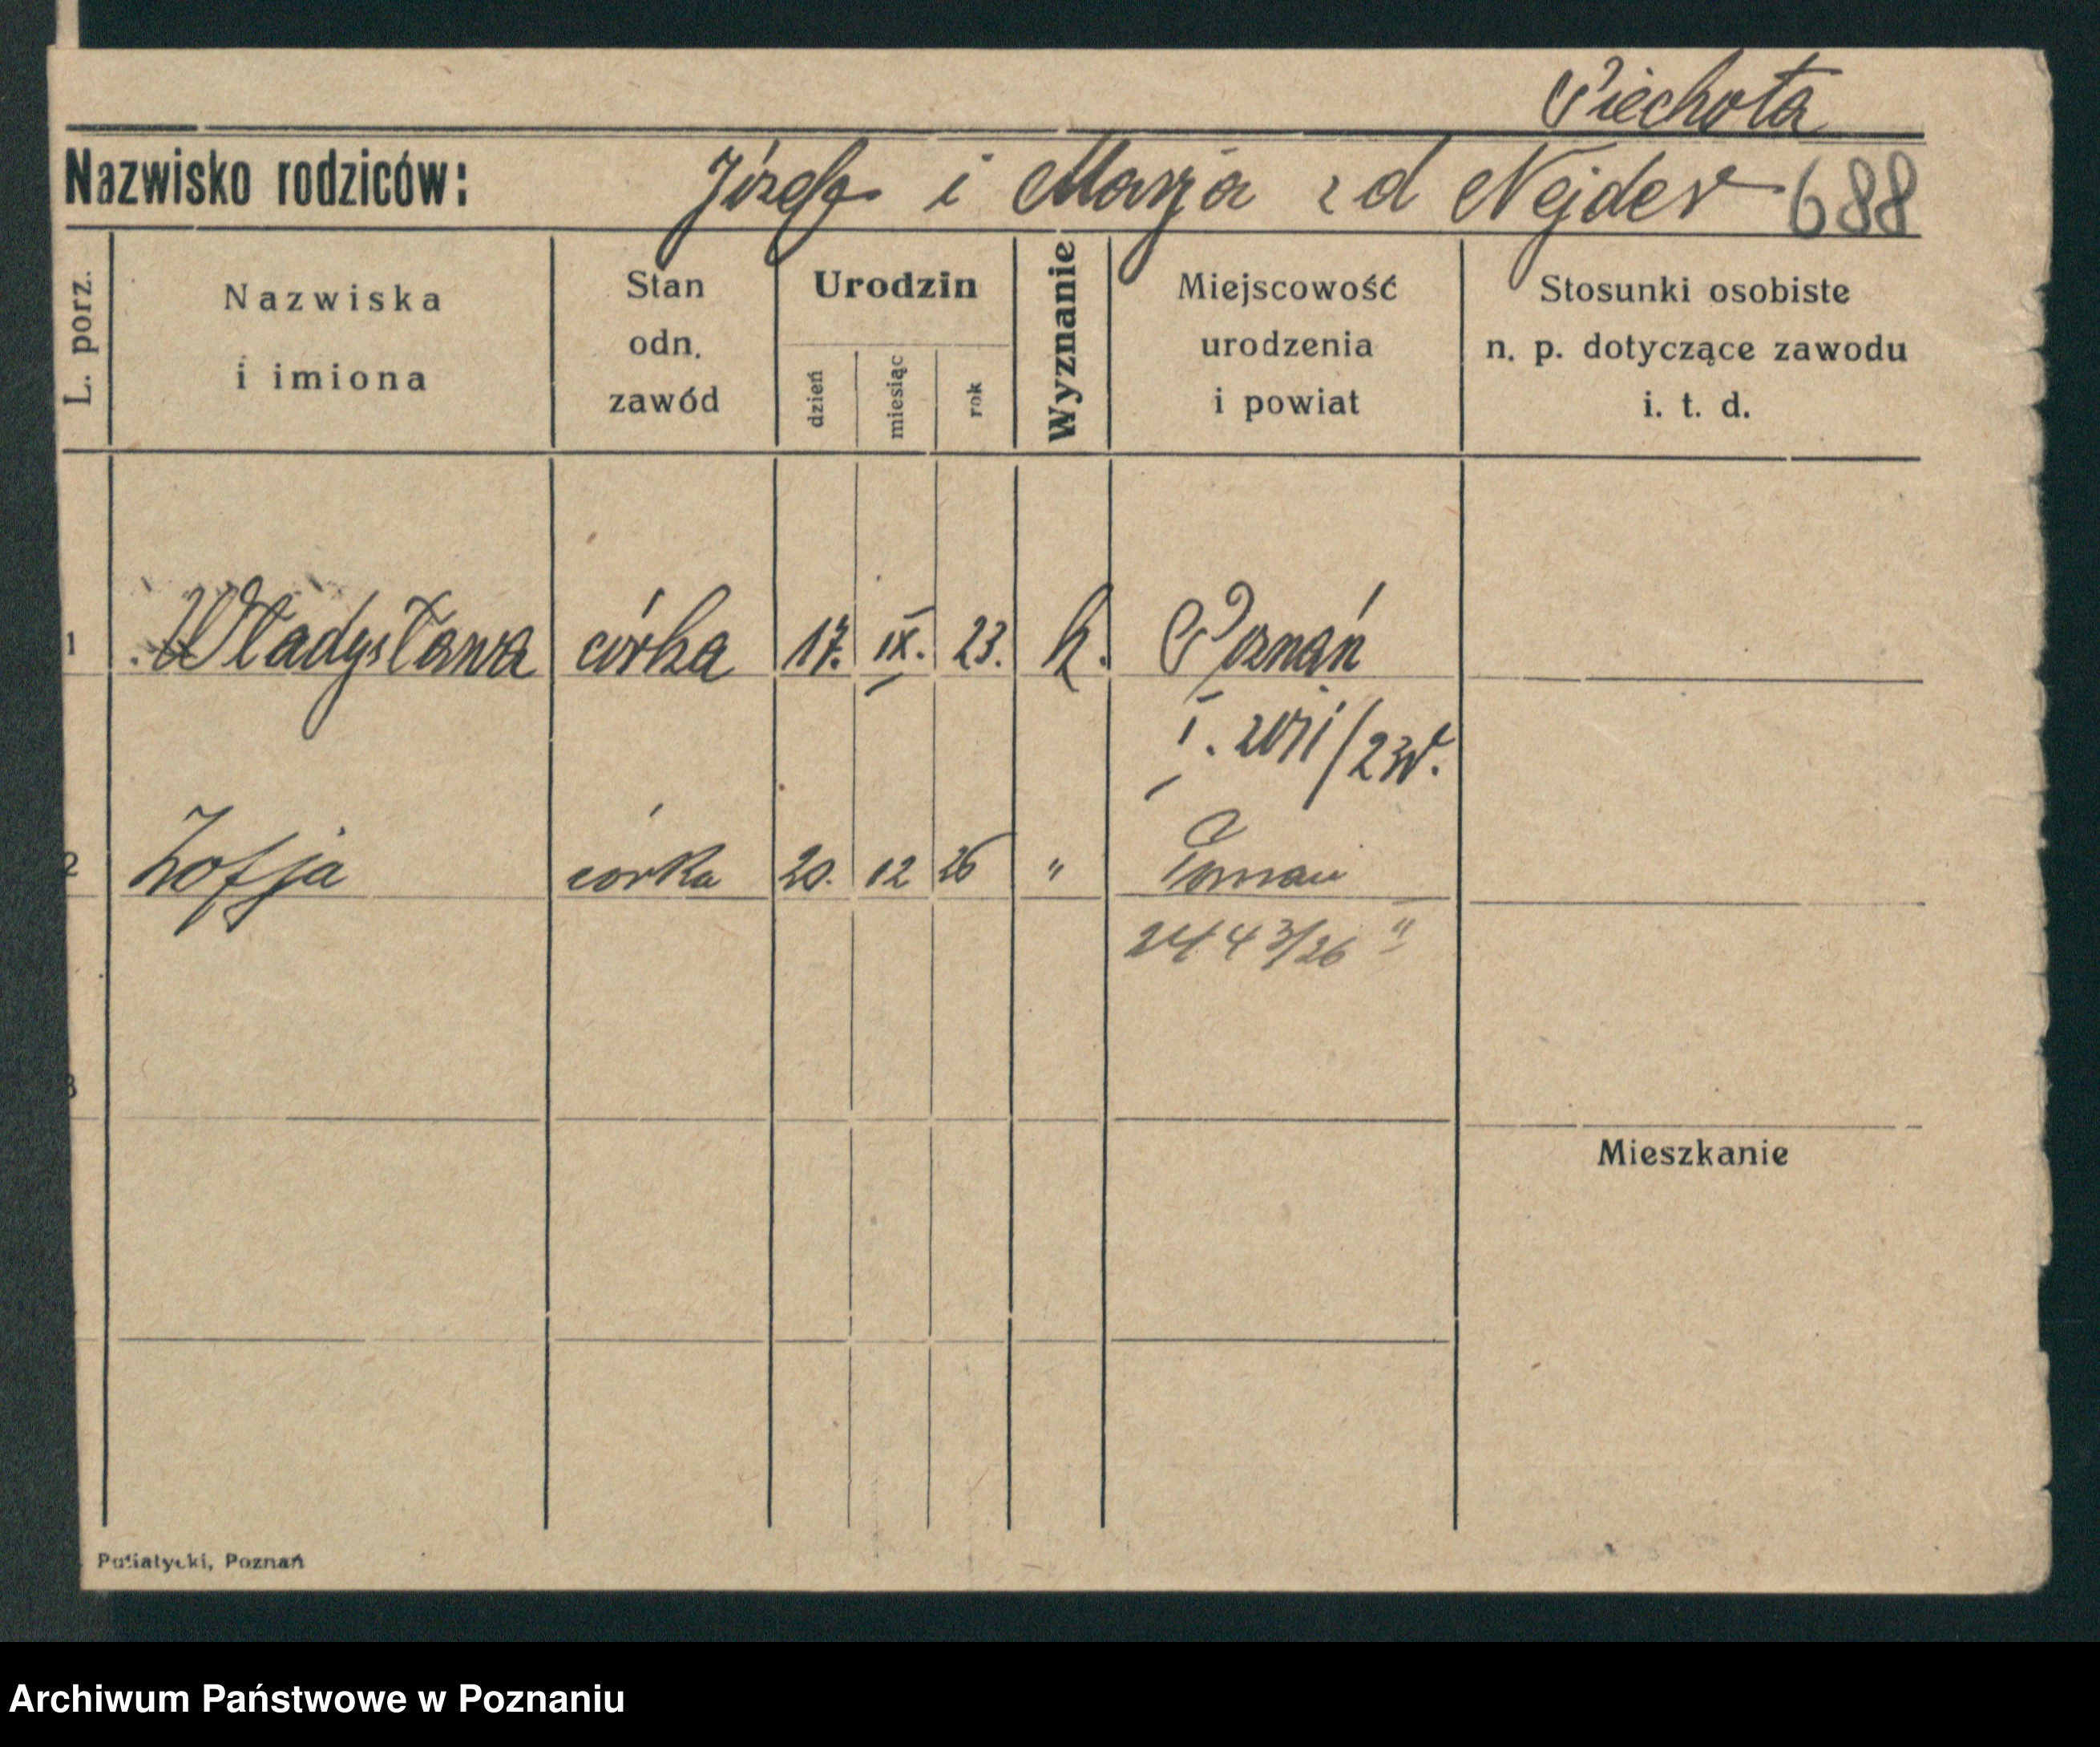 Piechota
Nazwisko rodziców: Józef i Marja z d Nejder 688
L. porz.
Nazwiska
i imiona
Stan
odn.
zawód
Urodzin
dzień
miesiąc
rok
Wyznanie
Miejscowość
urodzenia
i powiat
Stosunki osobiste
n. p. dotyczące zawodu
i. t. d.
1 Władysława córka 17. IX. 23. k. Poznań
2 Zofja córka 20. 12 26 " Poznań
3
Mieszkanie
Putiatycki, Poznań
Archiwum Państwowe w Poznaniu